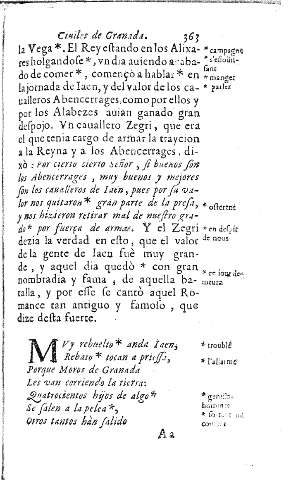 Ciuiles de Granada. 363
la Vega*. El Rey estando en los Alixa-
res holgandose*, vn dia auiendo acaba-
do de comer*, començò a hablar* en
la jornada de Iaen, y del valor de los ca-
ualleros Abencerrages, como por ellos y
por los Alabezes auian ganado gran
despojo. Vn cauallero Zegri, que era
el que tenia cargo de armar la traycion
a la Reyna y a los Abencerrages, di-
xò: Por cierto cierto Señor, si buenos son
los Abencerrages, muy buenos y mejores
son los caualleros de Iaen, pues por su va-
lor nos quitaron* gran parte de la presa,
y nos hizieron retirar mal de nuestro gra-
do* por fuerça de armas. Y el Zegri
dezia la verdad en esto, que el valor
de la gente de Iaen fuè muy gran-
de, y aquel dia quedò* con gran
nombradia y fama, de aquella ba-
talla, y por esse se cantò aquel Ro-
mance tan antiguo y famoso, que
dize desta suerte.
MVy rebuelto* anda Iaen,
Rebato* tocan a priessa,
Porque Moros de Granada
Les van corriendo la tierra:
Quatrocientos hijos de algo*
Se salen a la pelea*,
Otros tantos hàn salido
Aa
* campagne
* s'esiouis-
sans
* manger
* parler
* osterent
* en despit
de nous
* troublé
* l'allarme